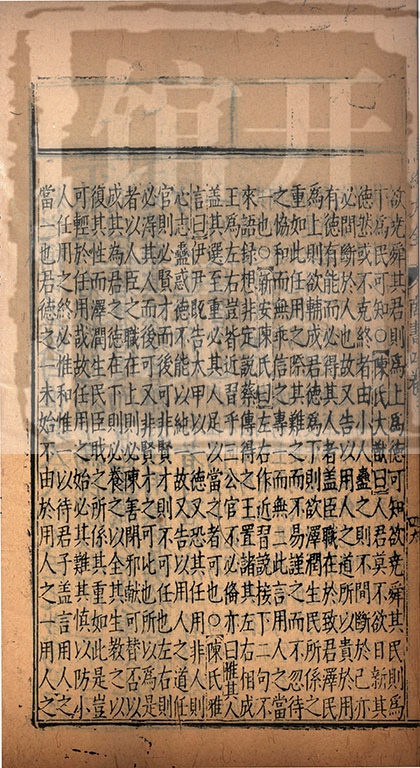 欲堯舜其君則爲上爲德可知欲堯舜其民則爲
下爲民可知○陳氏大猷曰人君莫不欲日新其
德然或不克終者由小人蠱之則間斷於己亦
必間斷於人也故又告以用人之道所以貴於
有能其人者蓋臣職在於致君澤民
爲上則欲輔成君德爲下則欲澤潤生民所係之
重如此任用之際其難之而不易謹之而不忽待
之協和而無乖信之專一而無二此言用人之當
一也○新安陳氏曰左右作近習說接下二句不
來語錄想非蔡傳得之王置諸其左右相成
王爲左右豈皆近習乎三公官不必備亦曰惟其人
蓋其選至重其人足以當之者可也○陳氏雅
言曰伊尹旣告太甲以一德又恐其任用非人則
心志蠱惑德不能以純一故又告以用人之道任
官則必賢才而後可以非賢才則不可任也左右則
必得其人而後可又非賢才之可比也所以爲是
者以人臣之職在上則必陳善閉邪獻可替否以
成其爲君之德在下則必養之以全其生教之以
復其性澤潤生民臣之所係其重如此是豈
可輕於任用哉故任用之始必其難其慎以防小
人任用之終必惟和惟一以待君子蓋言用人之
當一也君德之一未始不由於用人之一用人之